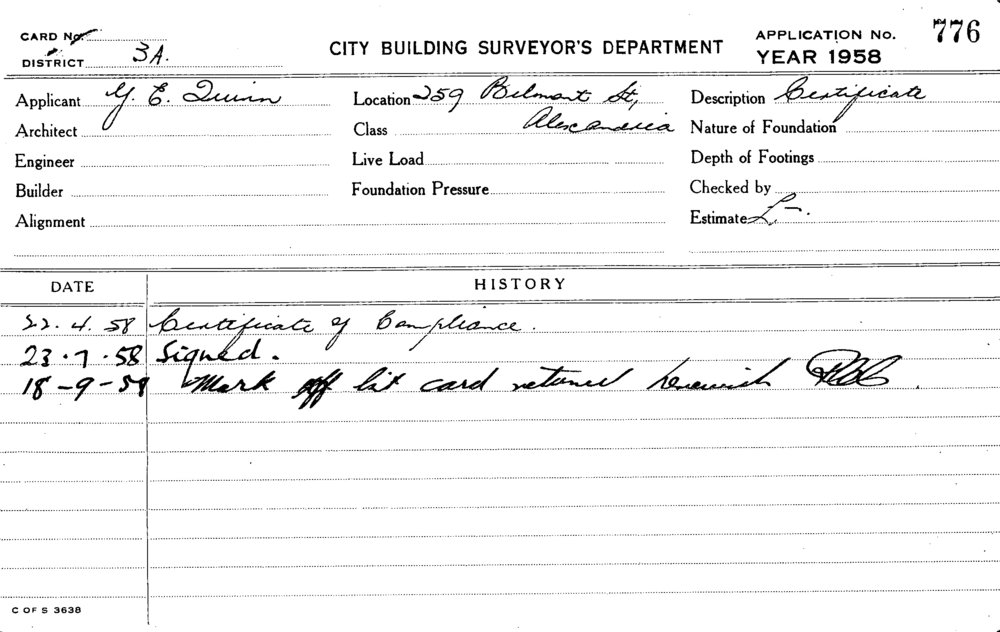 CARD No.
DISTRICT 3A.
CITY BUILDING SURVEYOR'S DEPARTMENT
APPLICATION No. 776
YEAR 1958
Applicant Y. E. Quinn Location 259 Belmont St, Description Certificate
Architect Class Alexandria Nature of Foundation
Engineer Live Load Depth of Footings
Builder Foundation Pressure Checked by
Alignment Estimate £ –.
DATE HISTORY
22.4.58 Certificate of Compliance.
23.7.58 Signed.
18-9-59 Mark off list card returned herewith
C OF S 3638